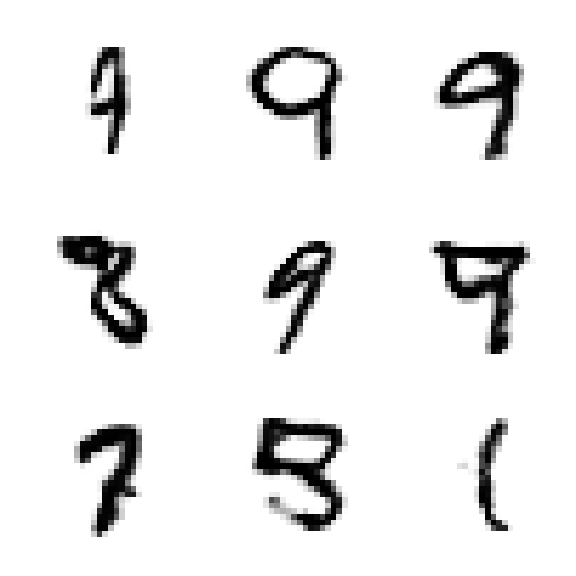 9 9 9
8 9 9
7 5 (